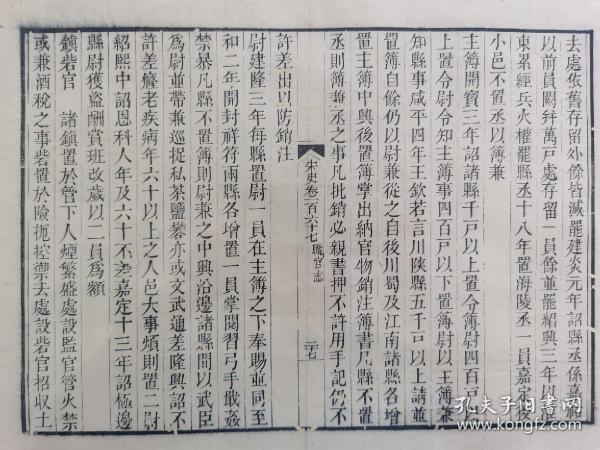 去處依舊存留外餘皆減罷建炎元年詔縣丞係嘉祐
以前員闕并萬戶處存留一員餘並罷紹興三年以淮
東累經兵火權罷縣丞十八年置海陵丞一員嘉定後
小邑不置丞以簿兼
主簿開寶三年詔諸縣千戶以上置令簿尉四百戶以
上置令尉令知主簿事四百戶以下置簿尉以主簿兼
知縣事咸平四年王欽若言川陝縣五千戶以上請並
置簿自餘仍以尉兼從之自後川蜀及江南諸縣各增
置主簿中興後置簿掌出納官物銷注簿書凡縣不置
丞則簿兼丞之事凡批銷必親書押不許用手記仍不
宋史卷一百六十七 職官志
許差出以防銷注
尉建隆三年每縣置尉一員在主簿之下奉賜並同至
和二年開封祥符兩縣各增置一員掌閱習弓手戢姦
禁暴凡縣不置簿則尉兼之中興沿邊諸縣間以武臣
爲尉並帶兼巡捉私茶鹽礬亦或文武通差隆興詔不
許差癃老疾病年六十以上之人邑大事煩則置二尉
紹熙中詔恩科人年及六十不差嘉定十三年詔極邊
縣尉獲盜酬賞班改歲以二員爲額
鎮砦官 諸鎮置於管下人煙繁盛處設監官管火禁
或兼酒稅之事砦置於險扼控禦去處設砦官招收土
孔夫子旧书网